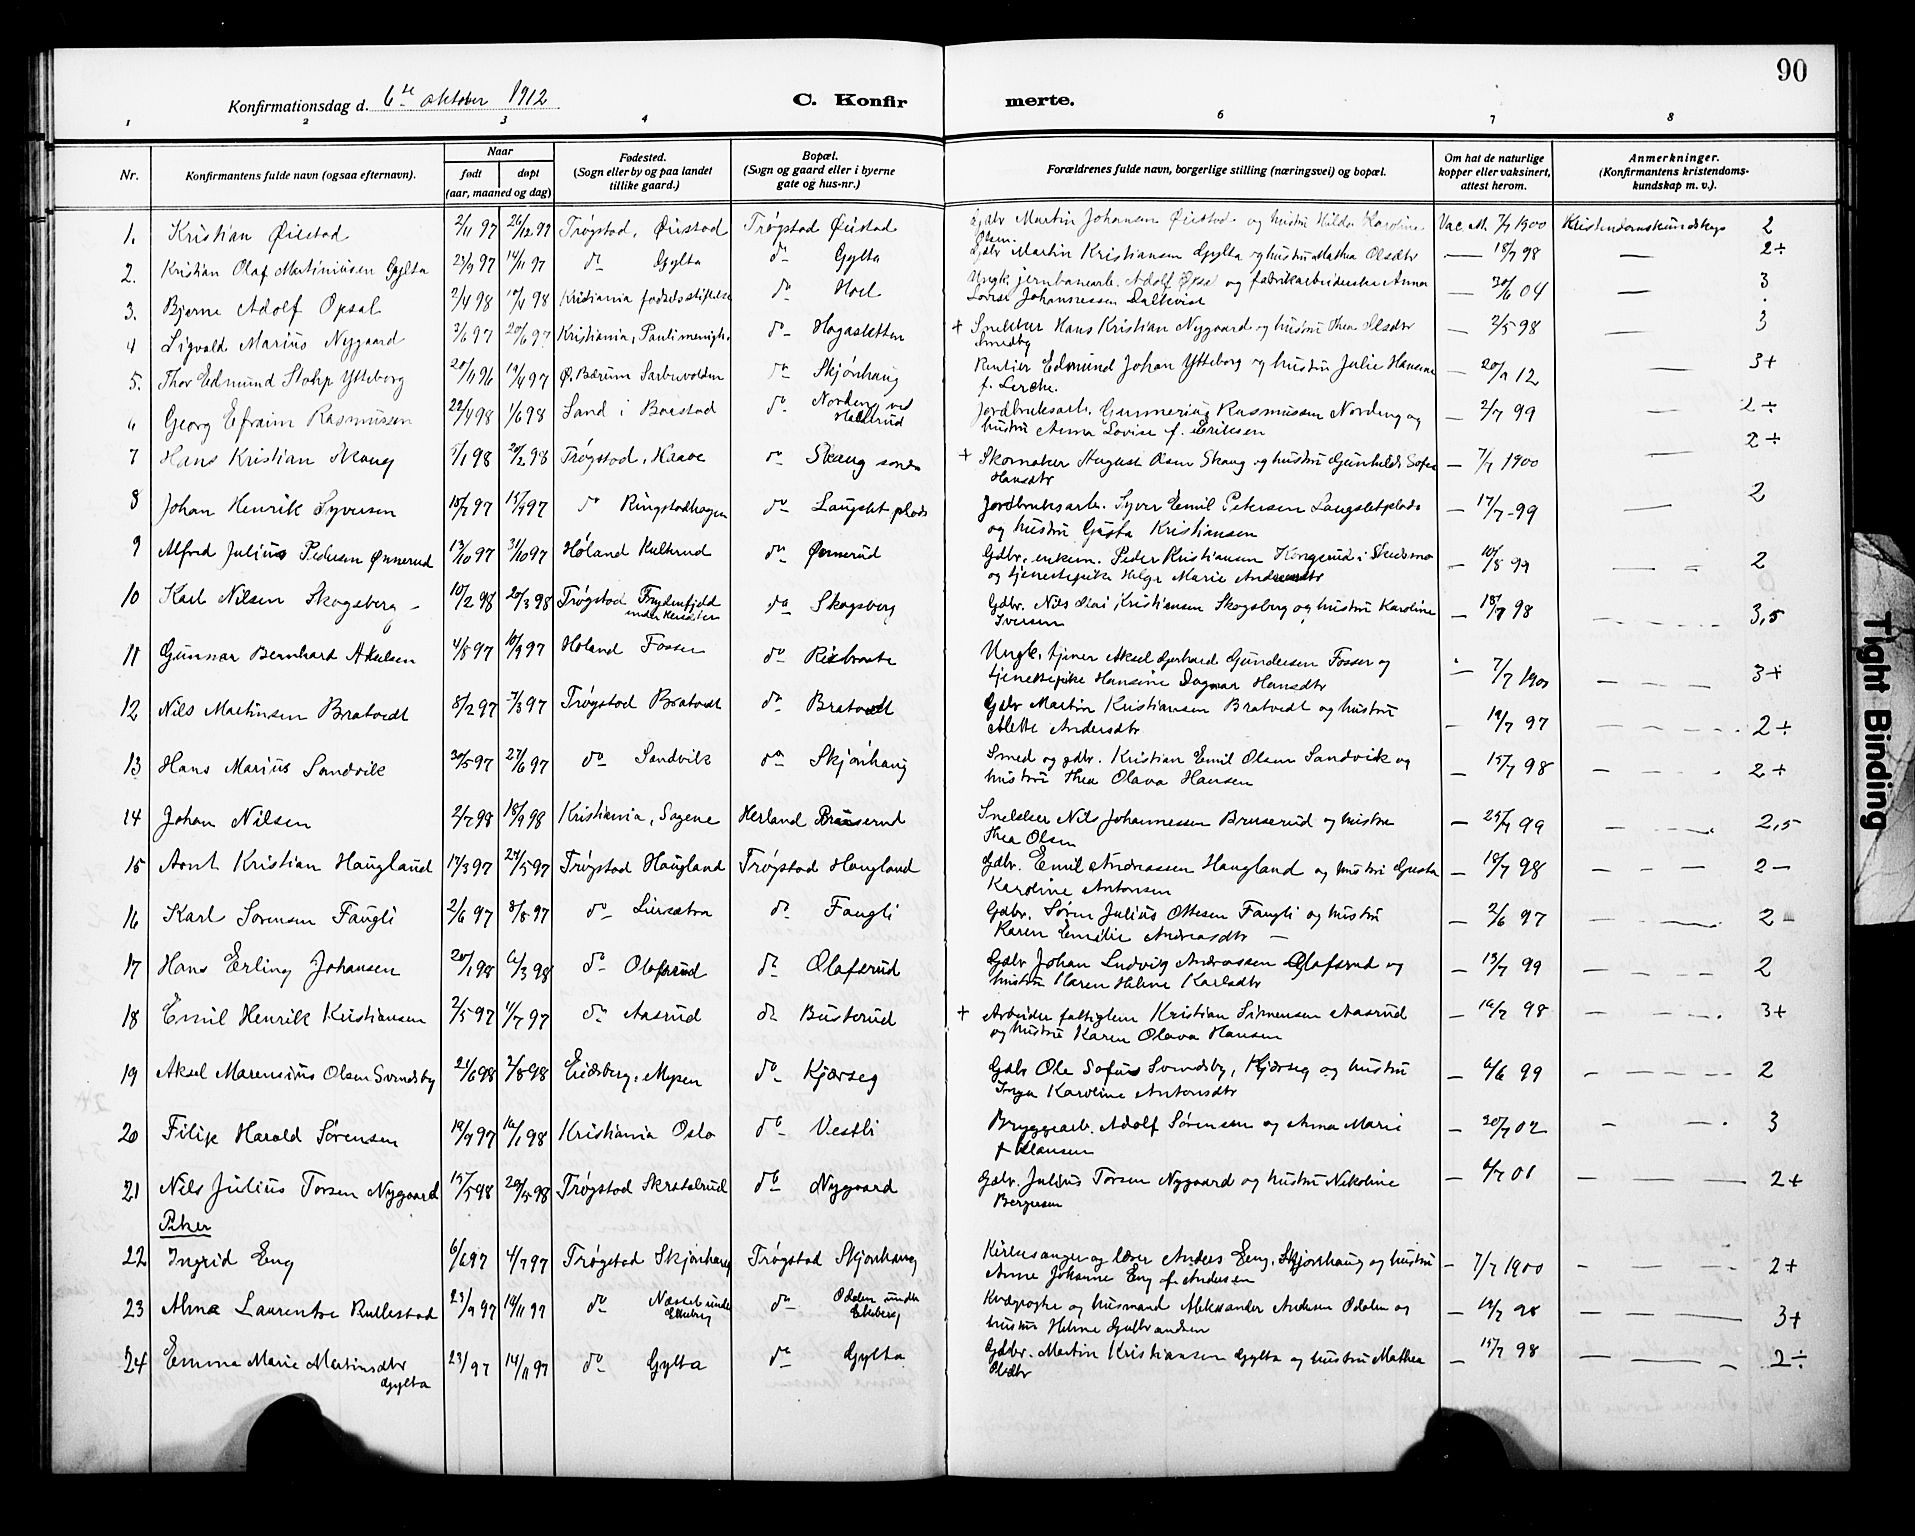 90
Konfirmationsdag d. 6te oktober 1912 C. Konfirmerte.
1 2 3 4 6 7 8
Nr. Konfirmantens fulde navn (ogsaa efternavn). Naar født døpt (aar, maaned og dag) Fødested. (Sogn eller by og paa landet tillike gaard.) Bopæl. (Sogn og gaard eller i byerne gate og hus-nr.) Forældrenes fulde navn, borgerlige stilling (næringsvei) og bopæl. Om hat de naturlige kopper eller vaksinert, attest herom. Anmerkninger. (Konfirmantens kristendomskundskap m. v.).
1. Kristian Øiestad 2/11 97 26/12 97 Trøgstad, Øiestad Trøgstad Øiestad Gdbr Martin Johansen Øiestad og hustru Hilda Karoline Olsen Vac. At. 7/7 1900 Kristendomskundskap 2
2. Kristian Olaf Martiniusen Gylta 23/9 97 14/11 97 do Gylta do Gylta Gdbr Martin Kristiansen Gylta og hustru Mathea Olsdtr — 18/7 98 — 2÷
3. Bjarne Adolf Opsal 2/4 98 10/4 98 Kristiania fødselsstiftelse do Hoel Ungk. jernbanearb. Adolf Opsal og fabrikarbeiderske Anna Lovise Johannessen Dalkvist — 30/6 04 — 3
4 Sigvald Marius Nygaard 3/6 97 20/6 97 Kristiania, Pauli menigh. do Hagasletten + Snekker Hans Kristian Nygaard og hustru Thea Olsdtr Smedby — 2/5 98 — 3
5. Thor Edmund Stohp Ytteborg 20/11 96 19/4 97 Ø. Bærum Sarbuvolden do Skjønhaug Rentier Edmund Johan Ytteborg og hustru Julie Hansine f. Lerche. — 20/9 12 — 3+
6 Georg Efraim Rasmussen 22/4 98 1/6 98 Sand i Baastad do Nordeng ved Haltrud Jordbruksarb. Gunnerius Rasmussen Nordeng og hustru Anna Lovise f. Eriksen — 2/7 99 — 2÷
7 Hans Kristian Skaug 5/1 98 20/2 98 Trøgstad, Haave do Skaug søndre + Skomaker August Olsen Skaug og hustru Gunhilde Sofie Hansdtr — 7/7 1900 — 2÷
8 Johan Henrik Syversen 18/7 97 15/9 97 do Ringstadhagen do Langslet plads Jordbruksarb. Syver Emil Petersen Langsletplads og hustru Gusta Kristiansen — 17/7-99 — 2
9 Alfred Julius Pedersen Ønnerud 13/10 97 31/10 97 Høland Kulterud do Ønnerud Gdbr. enkem. Peder Kristiansen Kongerud i Skedsmo og tjenestepike Helga Marie Andersdtr — 10/8 97 — 2
10 Karl Nilsen Skogsberg 10/2 98 20/3 98 Trøgstad Frydenfjeld do Skogsberg Gdbr. Nils Kristiansen Skogsberg og hustru Karoline Iversen — 18/7 98 — 3,5
11 Gunnar Bernhart Akselsen 4/8 97 10/9 97 Høland Fosser do Risbraate Ungk. tjener Aksel Gerhard Gundersen Fosser og tjenestepike Hansine Dagmar Hansdtr — 7/7 1900 — 3+
12 Nils Martinsen Bratvedt 8/2 97 7/3 97 Trøgstad Bratvedt do Bratvedt Gdbr Martin Kristiansen Bratvedt og hustru Alette Andersdtr — 19/7 97 — 2÷
13 Hans Marius Sandvik 30/5 97 27/6 97 do Sandvik do Skjønhaug Smed og gdbr. Kristian Emil Olsen Sandvik og hustru Thea Olava Hansen — 15/7 98 — 2+
14 Johan Nilsen 2/7 98 18/9 98 Kristiania, Sagene Herland Bruserud Snekker Nils Johannessen Bruserud og hustru Thea Olsen — 25/7 99 — 2,5
15 Arnt Kristian Haugland 17/3 97 27/5 97 Trøgstad Haugland Trøgstad Haugland Gdbr. Emil Andreassen Haugland og hustru Gusta Karoline Antonsen — 18/7 98 — 2—
16 Karl Sørensen Faugli 2/6 97 8/8 97 do Liersætra do Faugli Gdbr. Søren Julius Ottesen Faugli og hustru Karen Emilie Andreasdtr — 2/6 97 — 2-
17 Hans Erling Johansen 20/1 98 6/3 98 do Olafsrud do Olafsrud Gdbr Johan Ludvig Andreassen Olafsrud og hustru Karen Helene Karlsdtr — 15/7 99 — 2
18 Emil Henrik Kristiansen 2/5 97 11/7 97 do Aasrud do Busterud + Arbeider fattiglem Kristian Simensen Aasrud og hustru Karen Olava Hansen — 19/7 98 — 3+
19 Aksel Marensius Olsen Svendsby 21/6 98 7/8 98 Eidsberg, Mysen do Kjærseg Gdbr Ole Sofus Svendsby, Kjærseg og hustru Inga Karoline Antonsdtr — 6/6 99 — 2
20 Filip Harald Sørensen 19/9 97 16/1 98 Kristiania Oslo do Vestli Bryggearb. Adolf Sørensen og Anna Marie f Klausen — 20/7 02 — 3
21 Nils Julius Torsen Nygaard 15/5 98 29/5 98 Trøgstad Skratelrud do Nygaard Gdbr. Julius Torsen Nygaard og hustru Nikoline Bergersen — 6/7 01 — 2+
Piker
22 Ingrid Eng 6/6 97 4/7 97 Trøgstad Skjønhaug Trøgstad Skjønhaug Kirkesanger og lærer Anders Eng, Skjønhaug og hustru Anne Johanne Eng f. Andersen — 7/7 1900 — 2+
23 Alma Laurentse Rullestad 23/9 97 14/11 97 do Næset under Ekeberg do Odalen under Ekeberg Kvægrøgter og husmand Aleksander Andersen Odalen og hustru Helene Gulbrandsen — 19/7 98 — 3+
24 Emma Marie Martinsdtr Gylta 23/9 97 14/11 97 do Gylta do Gylta Gdbr. Martin Kristiansen Gylta og hustru Mathea Olsdtr — 15/7 98 — 2÷
Tight Binding